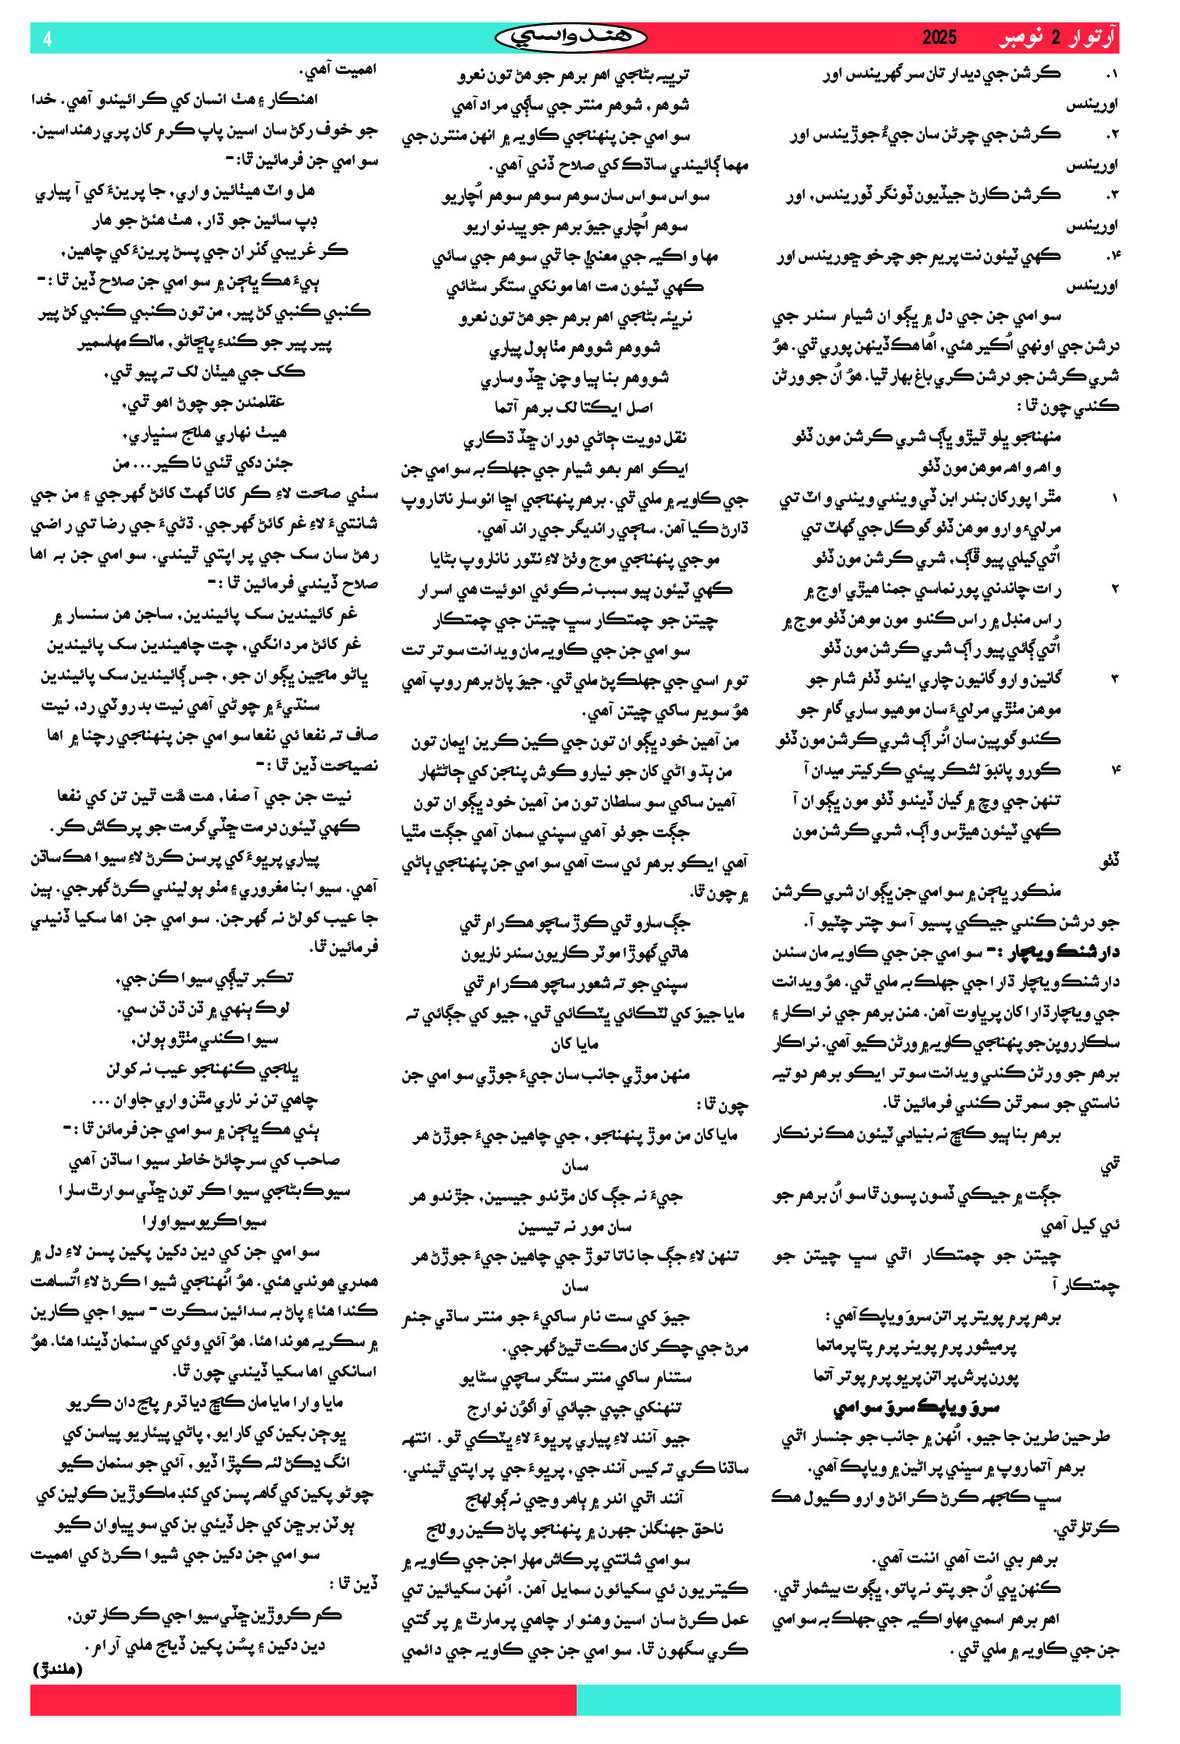 آرتوار 2 نومبر 2025
هندواسي
4
۱. ڪرشن جي ديدار تان سر گهرينديس اور
اورينديس
۲. ڪرشن جي چرڻن سان جيءُ جوڙينديس اور
اورينديس
۳. ڪرشن ڪارڻ جيڏيون ڏونگر ڏورينديس، اور
اورينديس
۴. ڪهي ٽيئون نت پريم جو چرخو چورينديس اور
اورينديس
سوامي جن جي دل ۾ ڀڳوان شيام سندر جي
درشن جي اونهي اُڪير هئي، اُها هڪ ڏينهن پوري ٿي. هوُ
شري ڪرشن جو درشن ڪري باغ بهار ٿيا. هوُ اُن جو ورڻن
ڪندي چون ٿا :
منهنجو ڀلو ٿيڙو ڀاڳ شري ڪرشن مون ڏٺو
واهه واهه موهن مون ڏٺو
۱ مٿرا پور کان بندرابن ڏي ويندي ويندي واٽ تي
مرليءَ وارو موهن ڏٺو گوڪل جي گهاٽ تي
اُتي کيلي پيو ڦاڳ، شري ڪرشن مون ڏٺو
۲ رات چاندني پورنماسي جمنا هيڙي اوج ۾
راس منڊل ۾ راس ڪندو مون موهن ڏٺو موج ۾
اُتي ڳائي پيو راڳ شري ڪرشن مون ڏٺو
۳ گانين وارو گانيون چاري ايندو ڏٺم شام جو
موهن مٺڙي مرليءَ سان موهيو ساري گام جو
ڪندو گوپين سان اُنراڳ شري ڪرشن مون ڏٺو
۴ ڪورو پانڊو لشڪر پيئي ڪرکيتر ميدان آ
تنهن جي وچ ۾ گيان ڏيندو ڏٺو مون ڀڳوان آ
ڪهي ٽيئون هيڙس واڳ، شري ڪرشن مون
ڏٺو
مذڪور ڀڄن ۾ سوامي جن ڀڳوان شري ڪرشن
جو درشن ڪندي جيڪي پسيو آ سو چتر چٽيو آ.
دارشنڪ ويچار :- سوامي جن جي ڪاويه مان سندن
دارشنڪ ويچار ڌارا جي جهلڪ به ملي ٿي. هوُ ويدانت
جي ويچار ڌارا کان پرڀاوت آهن. هنن برهم جي نراڪار ۽
ساڪار روپن جو پنهنجي ڪاويه ۾ ورڻن ڪيو آهي. نراڪار
برهم جو ورڻن ڪندي ويدانت سوتر ايڪو برهم دوتيه
ناستي جو سمرٿن ڪندي فرمائين ٿا.
برهم بنا ٻيو ڪڇ نه بنيادي ٽيئون هڪ نرنڪار
ٿي
جڳت ۾ جيڪي ڏسون پسون ٿا سو اُن برهم جو
ئي کيل آهي
چيتن جو چمتڪار اٿي سڀ چيتن جو
چمتڪار آ
برهم پرم پويتر پراتن سروَ وياپڪ آهي :
پرميشور پرم پوينر پرم پتا پرماتما
پورن پرش پراتن پريو پرم پوتر آتما
سروَ وياپڪ سروَ سوامي
طرحين طرين جا جيو، اُنهن ۾ جانب جو جنسار اٿي
برهم آتما روپ ۾ سڀني پراڻين ۾ وياپڪ آهي.
سڀ ڪجهه ڪرڻ ڪرائڻ وارو ڪيول هڪ
ڪرتار ٿي.
برهم بي انت آهي اننت آهي.
ڪنهن ڀي اُن جو پتو نه پاتو، ڀڳوت بيشمار ٿي.
اهم برهم اسمي مهاواڪيه جي جهلڪ به سوامي
جن جي ڪاويه ۾ ملي ٿي.
ترپيه بڻجي اهم برهم جو هڻ تون نعرو
شوهم، شوهم منتر جي ساڳي مراد آهي
سوامي جن پنهنجي ڪاويه ۾ انهن منترن جي
مهما ڳائيندي ساڌڪ کي صلاح ڏني آهي.
سواس سواس سان سوهم سوهم سوهم اُچاريو
سوهم اُچاري جيوَ برهم جو ڀيد نواريو
مهاواڪيه جي معنيٰ جا ٿي سوهم جي سائي
ڪهي ٽيئون مت اها مونکي ستگر سڻائي
نرڀئه بڻجي اهم برهم جو هڻ تون نعرو
شووهم شووهم مٺا ٻول پياري
شووهم بنا ٻيا وچن ڇڏ وساري
اصل ايڪتا لک برهم آتما
نقل دويت ڄاڻي دوران ڇڏ ڌڪاري
ايڪو اهم بهو شيام جي جهلڪ به سوامي جن
جي ڪاويه ۾ ملي ٿي. برهم پنهنجي اڇا انوسار ناناروپ
ڌارڻ ڪيا آهن. سڄي رانديگر جي راند آهي.
موجي پنهنجي موج وٺڻ لاءِ نٽور ناناروپ بڻايا
ڪهي ٽيئون ٻيو سبب نه ڪوئي ادوئيت هي اسرار
چيتن جو چمتڪار سڀ چيتن جي چمتڪار
سوامي جن جي ڪاويه مان ويدانت سوتر تت
توم اسي جي جهلڪ پڻ ملي ٿي. جيوَ پاڻ برهم روپ آهي
هوُ سويم ساکي چيتن آهي.
من آهين خود ڀڳوان تون جي ڪين ڪرين اڀمان تون
من ٻڌ واڻي کان جو نيارو ڪوش پنجن کي ڄاڻڻهار
آهين ساکي سو سلطان تون من آهين خود ڀڳوان تون
جڳت جوٺو آهي سپني سمان آهي جڳت مٿيا
آهي ايڪو برهم ئي ست آهي سوامي جن پنهنجي ٻاڻي
۾ چون ٿا.
جڳ سارو ٿي ڪوڙ ساچو هڪ رام ٿي
هاٿي گهوڙا موٽر ڪاريون سندر ناريون
سپني جو ته شعور ساچو هڪ رام ٿي
مايا جيوَ کي لٽڪائي ڀٽڪائي ٿي، جيو کي جڳائي ته
مايا کان
منهن موڙي جانب سان جيءَ جوڙي سوامي جن
چون ٿا :
مايا کان من موڙ پنهنجو، جي چاهين جيءَ جوڙڻ هر
سان
جيءَ نه جڳ کان مڙندو جيسين، جڙندو هر
سان مور نه تيسين
تنهن لاءِ جڳ جا ناتا توڙ جي چاهين جيءَ جوڙڻ هر
سان
جيوَ کي ست نام ساکيءَ جو منتر ساڌي جنم
مرڻ جي چڪر کان مڪت ٿيڻ گهرجي.
ستنام ساکي منتر ستگر سڄي سڻايو
تنهنکي جپي جپائي آواگوُن نوارج
جيو آنند لاءِ پياري پرڀوءَ لاءِ ڀٽڪي ٿو. انتهه
ساڌنا ڪري ته کيس آنند جي، پرڀوءَ جي پراپتي ٿيندي.
آنند اٿي اندر ۾ ٻاهر وڃي نه ڳولهج
ناحق جهنگلن جهرن ۾ پنهنجو پاڻ ڪين رولج
سوامي شانتي پرڪاش مهاراجن جي ڪاويه ۾
ڪيتريون ئي سکيائون سمايل آهن. اُنهن سکيائين تي
عمل ڪرڻ سان اسين وهنوار چاهي پرمارٿ ۾ پرگتي
ڪري سگهون ٿا. سوامي جن جي ڪاويه جي دائمي
اهميت آهي.
اهنڪار ۽ هٺ انسان کي ڪرائيندو آهي. خدا
جو خوف رکڻ سان اسين پاپ ڪرم کان پري رهنداسين.
سوامي جن فرمائين ٿا:-
هل واٽ هيٺائين واري، جا پرينءَ کي آ پياري
ڍپ سائين جو ڌار، هٺ هئڻ جو هار
ڪر غريبي گذران جي پسڻ پرينءَ کي چاهين،
ٻيءَ هڪ ڀڄن ۾ سوامي جن صلاح ڏين ٿا :-
ڪنبي ڪنبي کڻ پير، من تون ڪنبي ڪنبي کڻ پير
پير پير جو ڪندءِ پڇاڻو، مالڪ مهاسمير
ڪک جي هيٺان لک ته پيو ٿي،
عقلمندن جو چوڻ اهو ٿي،
هيٺ نهاري هلج سنڀاري،
جئن دکي ٿئي نا ڪير... من
سٺي صحت لاءِ ڪم کانا گهٽ کائڻ گهرجي ۽ من جي
شانتيءَ لاءِ غم کائڻ گهرجي. ڌڻيءَ جي رضا تي راضي
رهڻ سان سک جي پراپتي ٿيندي. سوامي جن به اها
صلاح ڏيندي فرمائين ٿا :-
غم کائيندين سک پائيندين، ساجن هن سنسار ۾
غم کائڻ مردانگي، چت چاهيندين سک پائيندين
ڀاڻو مڃين ڀڳوان جو، جس ڳائيندين سک پائيندين
سنڌيءَ ۾ چوڻي آهي نيت بد روٽي رد، نيت
صاف ته نفعا ئي نفعا سوامي جن پنهنجي رچنا ۾ اها
نصيحت ڏين ٿا :-
نيت جن جي آ صفا، هت هُت ٿين تن کي نفعا
ڪهي ٽيئون درمت ڇٽي گرمت جو پرڪاش ڪر.
پياري پرڀوءَ کي پرسن ڪرڻ لاءِ سيوا هڪ ساڌن
آهي. سيوا بنا مغروري ۽ مٺو ٻوليندي ڪرڻ گهرجي. ٻين
جا عيب کولڻ نه گهرجن. سوامي جن اها سکيا ڏنيدي
فرمائين ٿا.
تڪبر تياڳي سيوا ڪن جي،
لوڪ ٻنهي ۾ ڌن ڌن ڌن سي.
سيوا ڪندي مٺڙو ٻولن،
ڀلجي ڪنهنجو عيب نه کولن
چاهي تن نر ناري مٿن واري جاوان ...
ٻئي هڪ ڀڄن ۾ سوامي جن فرمائن ٿا :-
صاحب کي سرچائڻ خاطر سيوا ساڌن آهي
سيوڪ بڻجي سيوا ڪر تون ڇٽي سوارٿ سارا
سيوا ڪريو سيوا وارا
سوامي جن کي دين دکين پکين پسن لاءِ دل ۾
همدري هوندي هئي. هوُ اُنهنجي شيوا ڪرڻ لاءِ اُتساهت
ڪندا هئا ۽ پاڻ به سدائين سڪرت - سيوا جي ڪارين
۾ سڪريه هوندا هئا. هوُ آئي وئي کي سنمان ڏيندا هئا. هوُ
اسانکي اها سکيا ڏيندي چون ٿا.
مايا وارا مايا مان ڪڇ ديا ڌرم پڃ دان ڪريو
ڀوڄن بکين کي کارايو، پاڻي پيئاريو پياسن کي
انگ ڍڪڻ لئه ڪپڙا ڏيو، آئي جو سنمان ڪيو
چوڻو پکين کي گاهه پسن کي کنڊ ماڪوڙين ڪولين کي
ٻوٽن برڇن کي جل ڏيئي بن کي سوڀياوان ڪيو
سوامي جن دکين جي شيوا ڪرڻ کي اهميت
ڏين ٿا :
ڪم ڪروڙين ڇٽي سيوا جي ڪر ڪار تون،
دين دکين ۽ پسُن پکين ڏيج هلي آرام.
(هلندڙ)